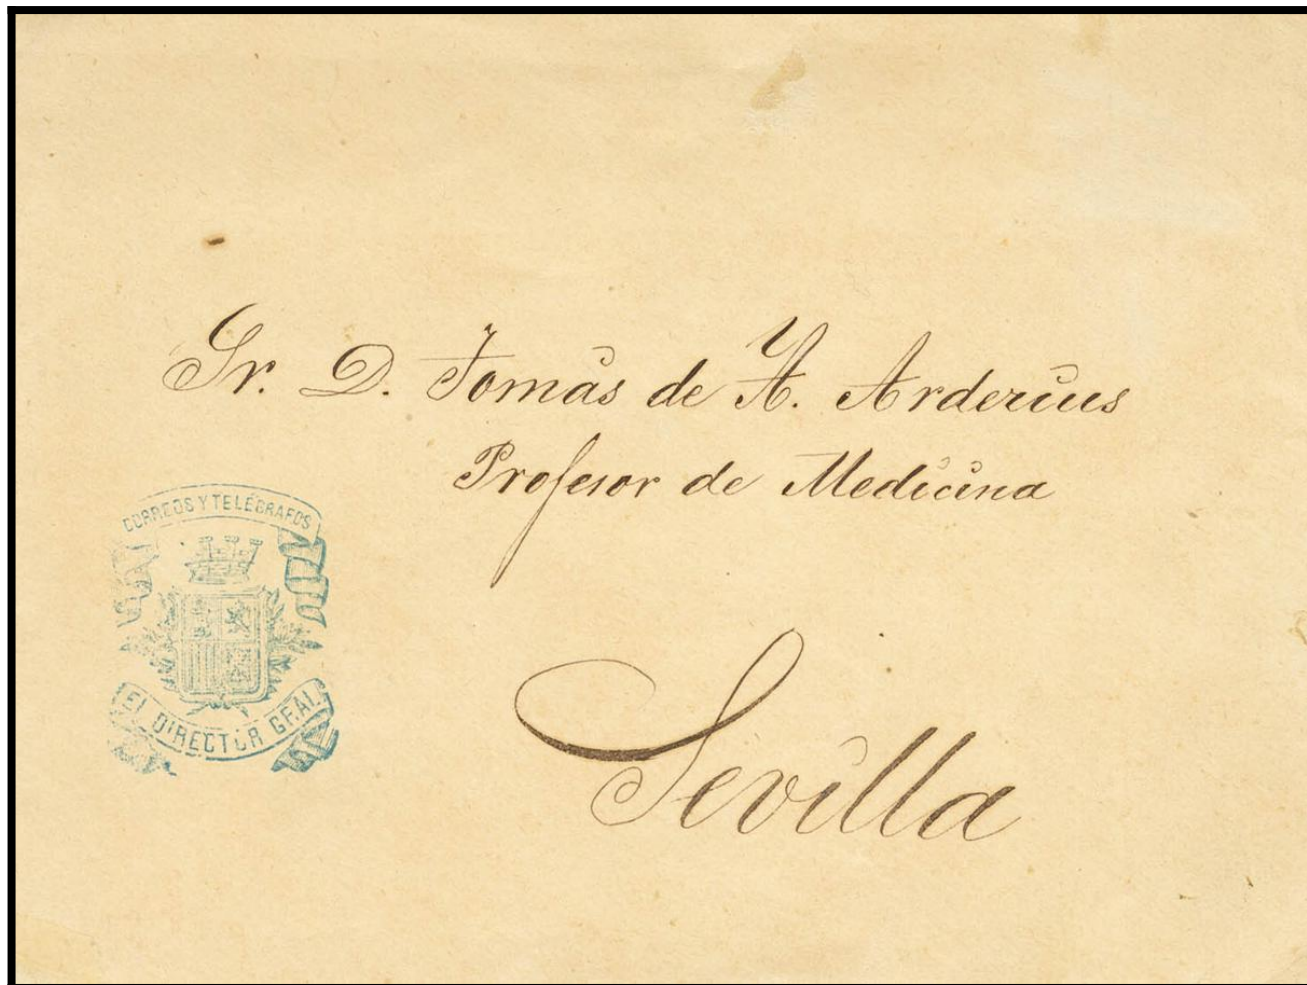 Sr. D. Tomás de A. Arderíus
Profesor de Medicina
CORREOS Y TELÉGRAFOS
EL DIRECTOR GRAL.
Sevilla